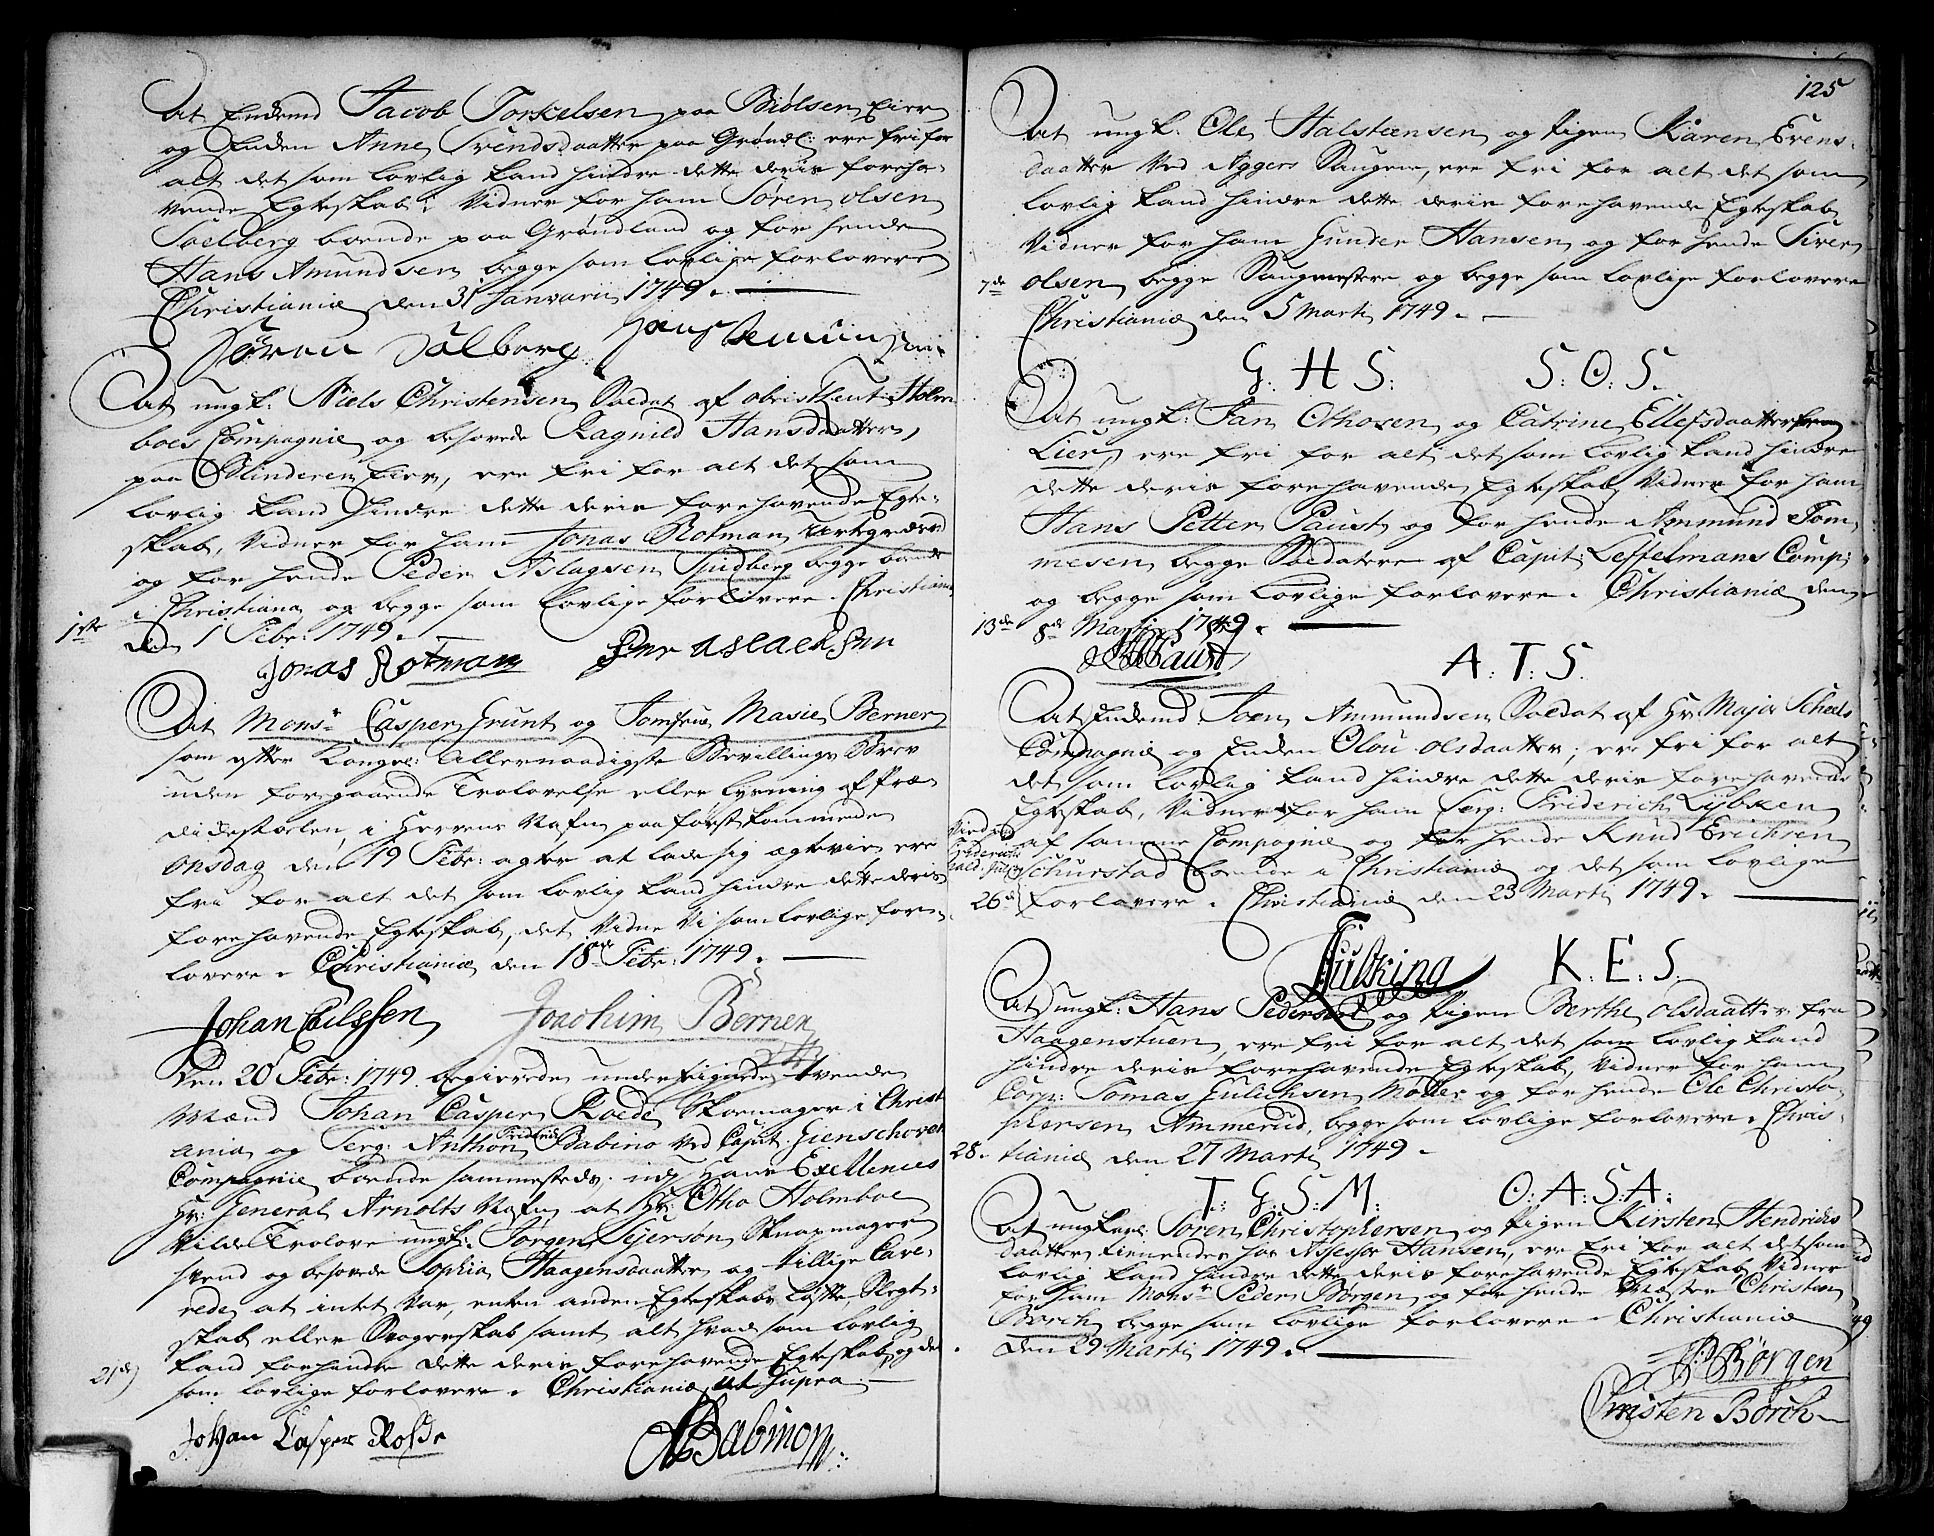 At Enkemd Jacob Torkelsen paa Biølsen Eier
og Enken Anne Svendsdaatter paa Grønl: ere fri for
alt det som lovlig kand hindre dette deris foreha-
vende Egteskab; Vidner for ham Søren olsen
Soelberg boende paa Grønland og for hende
Hans Amundsen begge som lovlige forlovere
Christianiæ den 31 Januarii 1749.
Søren Solberg Hans Amunsen
At ungk: Niels Christensen Soldat af obrist Leut: Holm
boes Compagnie og besovede Ragnild Hansdaatter,
paa Blinderen Eier, ere fri for alt det som
lovlig kand hindre dette deris forehavende Egte-
skab, Vidner for ham Jonas Rotman Urtegaards
og for hende Peder Aslagsen Sudberg begge boende
i Christiania og begge som lovlige forlovere. Christiania
1ste den 1 Febr: 1749.
Jonas Rotman Per Aslachsen
At Monsr Casper Grunt og Jomfrue Marie Berner
som efter Kongel: Allernaadigste Bevillings Brev
uden foregaaende Trolovelse eller lysning af Præ-
dickestoelen, i Herrens Nafn paa førstkommende
onsdag den 19 Febr: agter at lade sig ægtevie ere
fri for alt det som lovlig kand hindre dette deris
forehavende Egteskab, det Vidne Vi som lovlige for-
lovere. Christianiæ den 18 Febr: 1749.
Johan Eilssen Joachim Berner
Den 20 Febr: 1749 begierede underskrevede tvende
Mænd Johan Casper Roede Skomager i Christi
ania og Serg: Anthon Fridrich Babino ved Capit: Gienschoves
Compagnie boende sammesteds; udj Hans Exellences
Hr: General Arnolts Nafn at Hr: Otho Holmboe
Vilde Trolove ungk: Jørgen Sejersøn Skomager
svend og besovede Sophia Haagensdaatter og tillige Cave-
rede at intet Var, enten anden Egteskabs Løfte, Slegt-
skab eller Svogerskab samt alt hvad som lovlig
21de kand forhindre dette deris forehavende Egteskab, og det
som lovlige forlovere. Christianiæ ut supra.
Johan Casper Rosde ABabinon
125
At ungk: Ole Halsteensen og Pigen Karen Evens-
daatter Ved Aggers Saugene, ere fri for alt det som
lovlig kand hindre dette deris forehavende Egteskab
Vidner for ham Gunder Hansen og for hende Siver
7de olsen begge Saugmestere og begge som lovlige forlovere
Christianiæ den 5 Martj 1749.
G: H S: S: O: S.
At ungk: Jan Othosen og Catrine Ellefsdaatter fra
Lier, ere fri for alt det som lovlig kand hindre
dette deris forehavende Egteskab, Vidner for ham
Hans Petter Paust og for hende Ammund Tom
mesen begge Soldatere af Capit: Leffelmans Comp:
og begge som lovlige forlovere. Christianiæ den
13de 8de Martj 1749.
HPPaust A: T: S.
At Enkemd Joen Ammundsen Soldat af Hr: Major Scheels
Compagnie og Enken Olou olsdaatter, ere fri for alt
det som lovlig kand hindre dette deris forehavende
Egteskab, Vidner for ham Serg: Friderich Lybken
af samme Compagnie og for hende Knud Erichsen
Schurstad boende i Christianiæ og det som lovlige
26de forlovere. Christianiæ den 23 Martj 1749.
K. E. S.
At ungk: Hans Pedersen og Pigen Berthe olsdaatter fra
Haagenstuen, ere fri for alt det som lovlig kand
hindre deris forehavende Egteskab, Vidner for ham
Corp: Tomas Gulichsen Møller og for hende Ole Christo-
phersen Ammerud, begge som lovlige forlovere. Chris-
28. tianiæ den 27 Martj 1749.
T: G: S: M: O: A: S: A:
At ungkarl Søren Christophersen og Pigen Kirsten Hendrichs
daatter tienender hos Assessor Hansen, ere fri for alt det som
lovlig kand hindre dette deris forehavende Egteskab, Vidner
for ham Monsr Peder Børgen og for hende Mæster Christen
Borch begge som lovlige forlovere. Christianiæ
den 29 Martj 1749.
PBörgen
Christen Borch